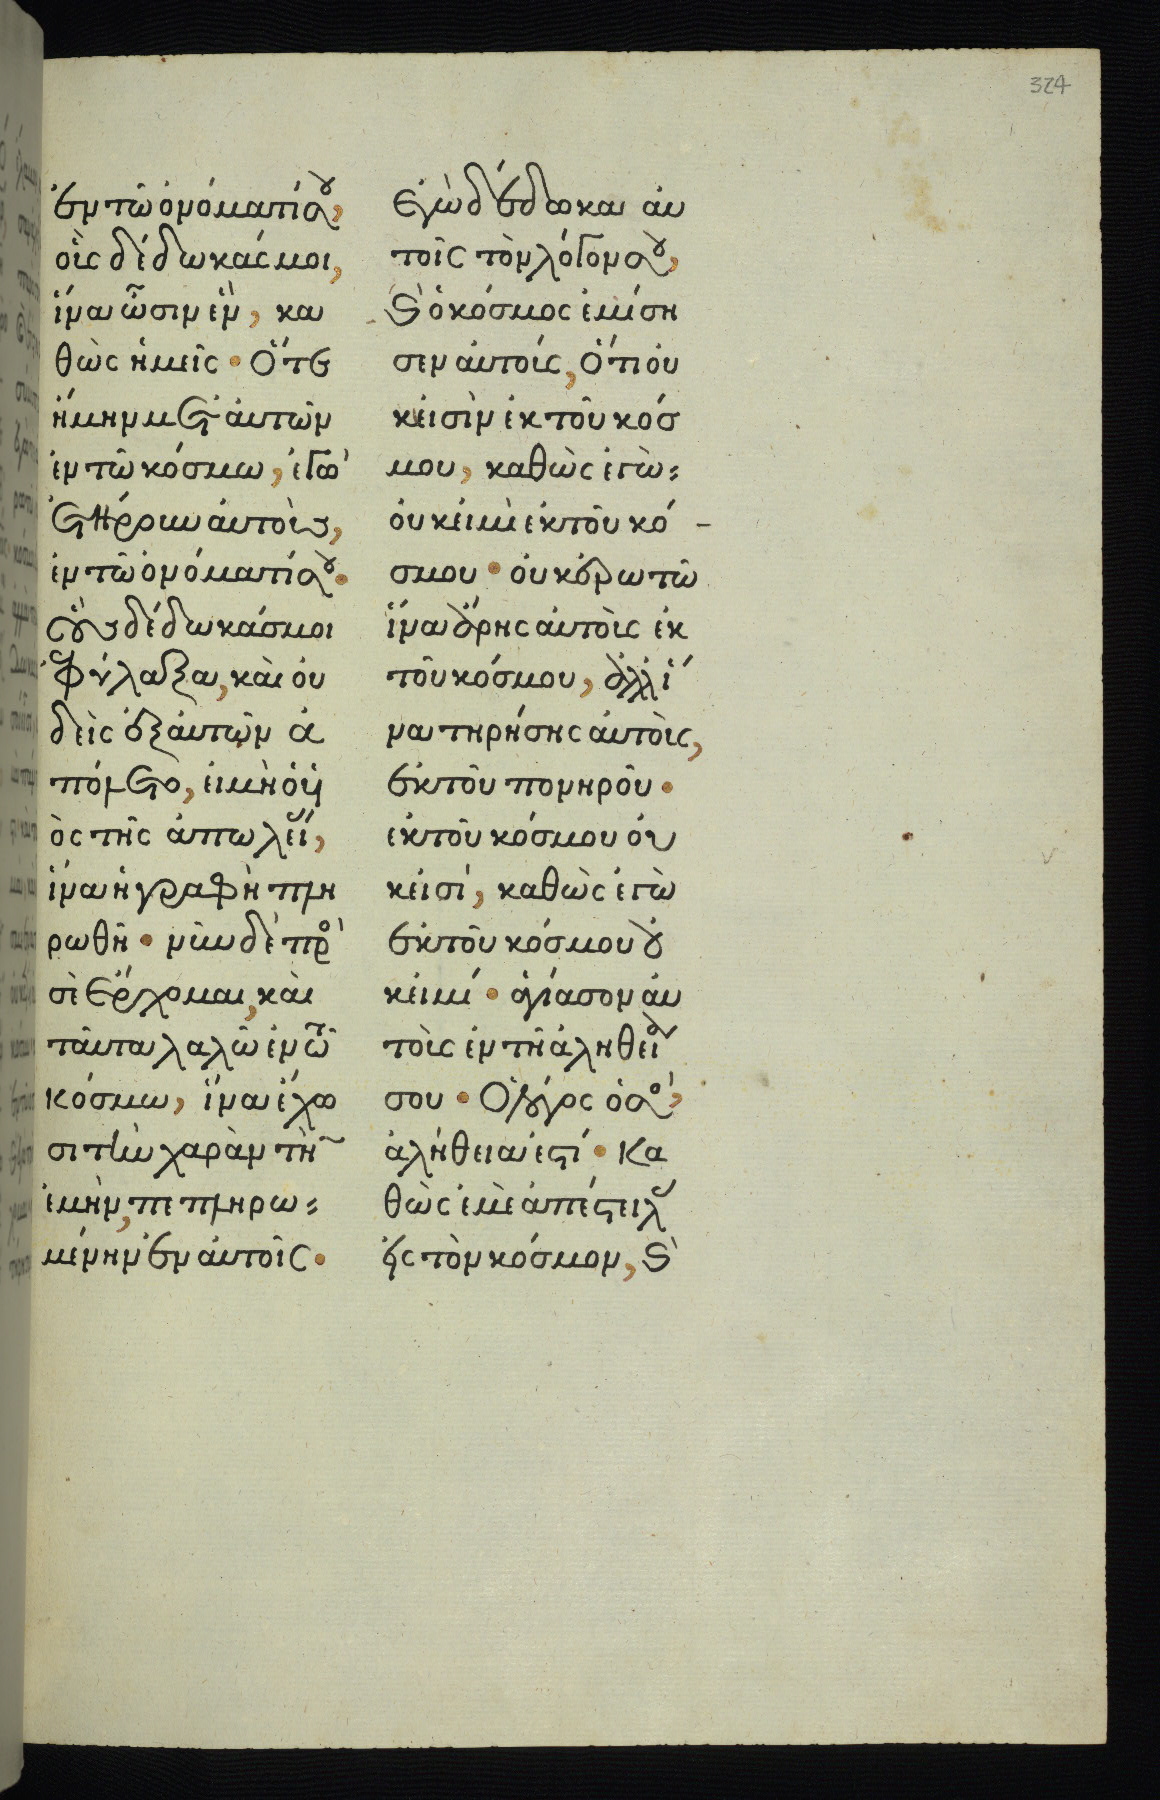 324
ἐν τῶ ὀνόματί σου,
οἷς δέδωκάς μοι,
ἵνα ὦσιν ἓν, κα
θὼς ἡμεῖς · Ὅτε
ἤμην μετ' ἀυτῶν
ἐν τῶ κόσμω, ἐγὼ
ἐτήρουν ἀυτοὺς,
ἐν τῶ ὀνόματί σου ·
οὓς δέδωκάσ μοι
ἐφύλαξα, καὶ ου
δεὶς ἐξ ἀυτῶν ἀ
πώλετο, ἐι μὴ ὁ υἱ
ὸς τῆς ἀπωλεί,
ἵνα ἡ γραφὴ πλη
ρωθῆ · νῦν δὲ πρὸ
σὲ ἔρχομαι, καὶ
ταῦτα λαλῶ ἐν τῶ
κόσμω, ἵνα ἔχω
σι τὴν χαρὰν τὴν
ἐμὴν, πεπληρω=
μένην ἐν ἀυτοῖς ·
Ἐγὼ δέδωκα ἀυ
τοῖς τὸν λόγον σου,
κὶ ὁ κόσμος ἐμίση
σεν ἀυτοὺς, Ὅτι ὀυ
κ ἐισὶν ἐκ τοῦ κόσ
μου, καθὼς ἐγὼ=
ὀυκ ἐιμὶ ἐκ τοῦ κό -
σμου · ὀυκ ἐρωτῶ
ἵνα ἄρης ἀυτοὺς ἐκ
τοῦ κόσμου, ἀλλ' ἵ
να τηρήσης ἀυτοὺς,
ἐκ τοῦ πονηροῦ ·
ἐκ τοῦ κόσμου ὀυ
κ ἐισί, καθὼς ἐγὼ
ἐκ τοῦ κόσμου ὀυ
κ ἐιμί · ἁγίασον ἀυ
τοὺς ἐν τῆ ἀληθεί
σου · Ὁ λόγος ὁ σὸ,
ἀλήθεια ἐστί · Κα
θὼς ἐμὲ ἀπέστειλ
εἰς τὸν κόσμον, κὶ